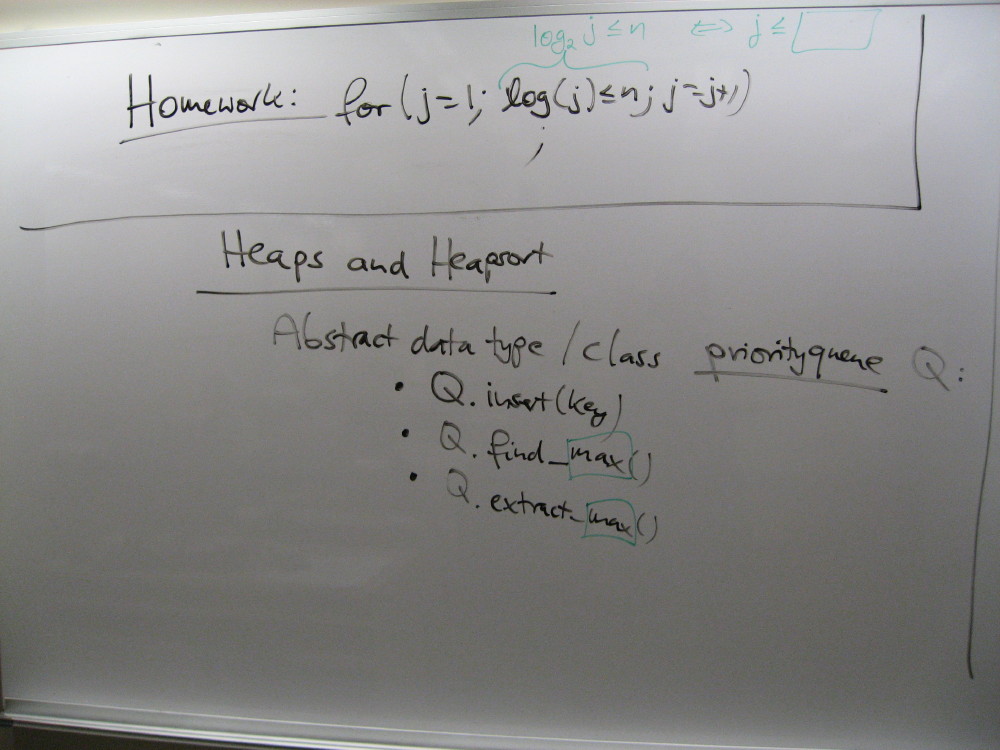 log₂ j ≤ n ⇔ j ≤
Homework: for (j=1; log(j) ≤ n; j=j+1)
;
Heaps and Heapsort
Abstract data type / class priorityqueue Q:
• Q. insert(key)
• Q. find_max()
• Q. extract_max()